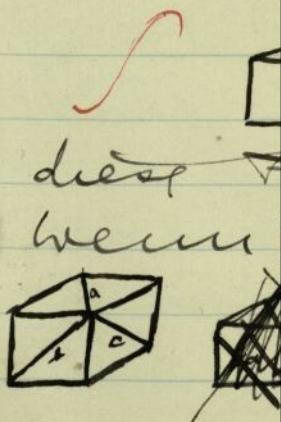 ∫
diese
wenn
a
b c